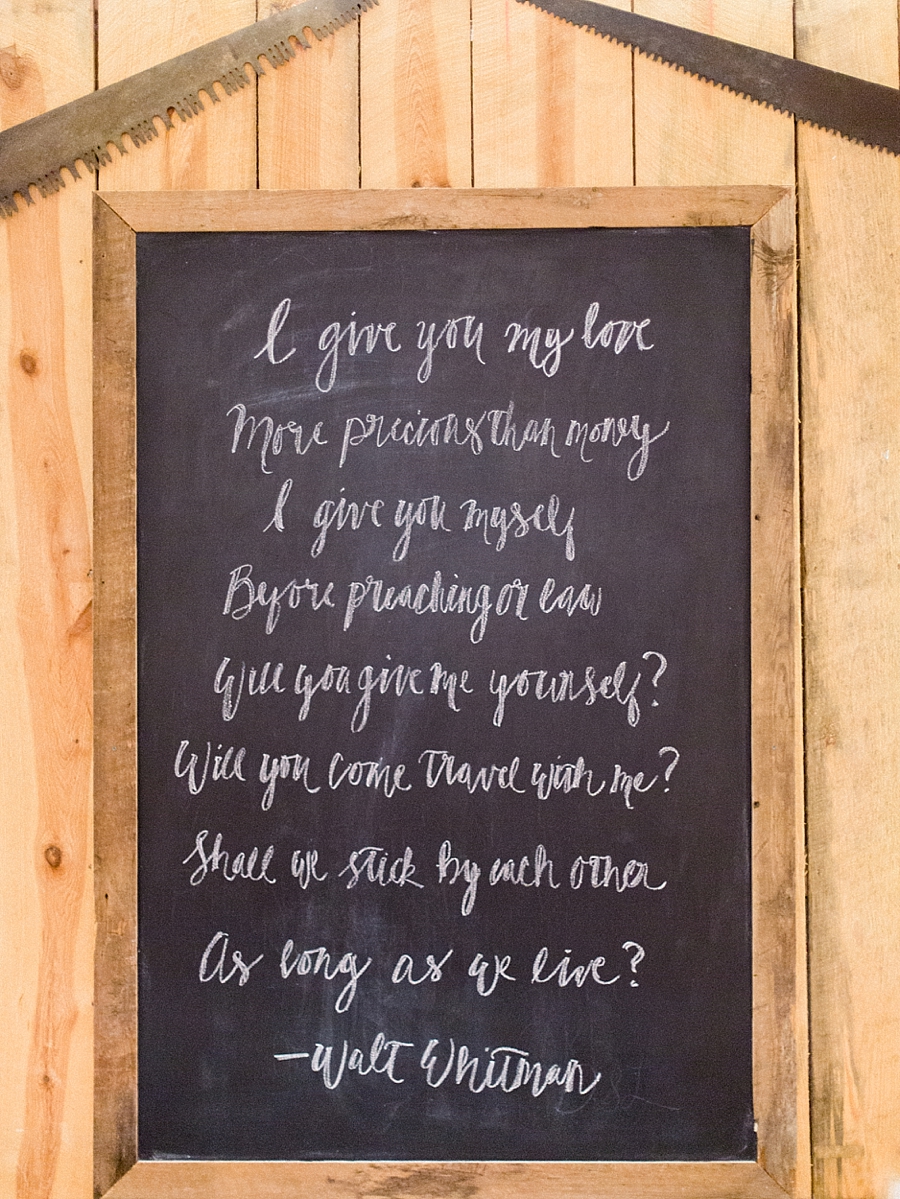 I give you my love
More precious than money
I give you myself
Before preaching or law
Will you give me yourself?
Will you come travel with me?
Shall we stick by each other
As long as we live?
—Walt Whitman